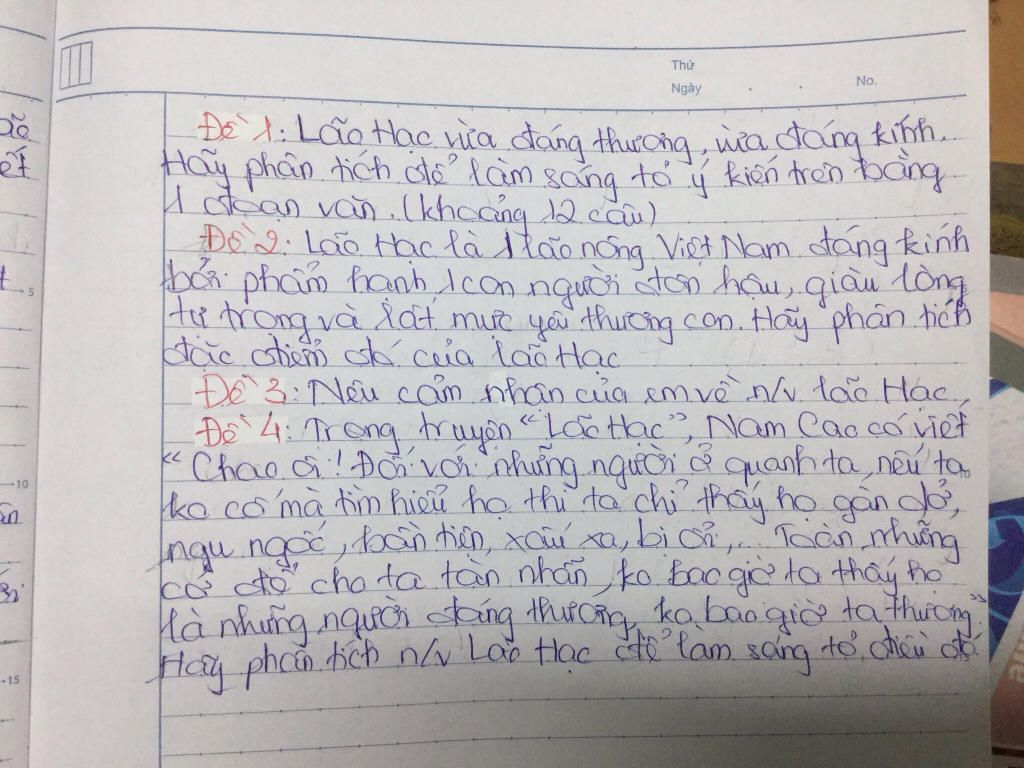 Thứ
Ngày . . No.
Đề 1: Lão Hạc vừa đáng thương, vừa đáng kính.
Hãy phân tích để làm sáng tỏ ý kiến trên bằng
1 đoạn văn. (khoảng 12 câu)
Đề 2: Lão Hạc là 1 lão nông Việt Nam đáng kính
bởi phẩm hạnh 1 con người đôn hậu, giàu lòng
tự trọng và rất mực yêu thương con. Hãy phân tích
đặc điểm đó của lão Hạc
Đề 3: Nêu cảm nhận của em về n/v lão Hạc.
Đề 4: Trong truyện "Lão Hạc", Nam Cao có viết
"Chao ôi! Đối với những người ở quanh ta, nếu ta
ko cố mà tìm hiểu họ thì ta chỉ thấy họ gàn dở,
ngu ngốc, bần tiện, xấu xa, bỉ ổi,... Toàn những
cớ để cho ta tàn nhẫn, ko bao giờ ta thấy họ
là những người đáng thương, ko bao giờ ta thương"
Hãy phân tích n/v Lão Hạc để làm sáng tỏ điều đó.
5
10
15